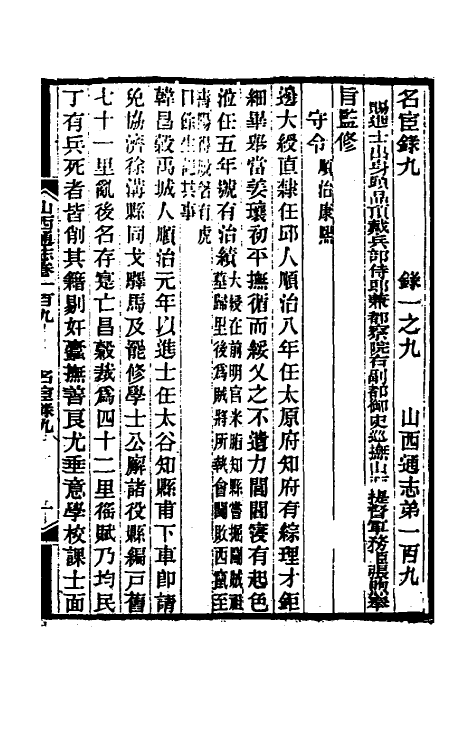 名宦錄九　錄一之九　山西通志第一百九
賜進士出身頭品頂戴兵部侍郎兼都察院右副都御史巡撫山西提督軍務臣張煦奉
旨監修
守令 順治康熙
邊大綬直隸任邱人順治八年任太原府知府有綜理才鉅
細畢舉當姜瓖初平撫循而綏父之不遺力閭閻寖有起色
涖任五年號有治績 大綬在前明官米脂知縣嘗掘闖賊祖
墓歸里後為賊將所執會闖敗西竄至
壽陽得脫名有虎
口餘生記其事
韓昌穀禹城人順治元年以進士任太谷知縣甫下車卽請
免協濟徐溝縣同戈驛馬及罷修學士公廨諸役縣編戸舊
七十一里亂後名存寔亡昌穀裁為四十二里徭賦乃均民
丁有兵死者皆削其籍剔奸蠹撫善良尤垂意學校課士面
山西通志卷一百九　名宦錄九　一